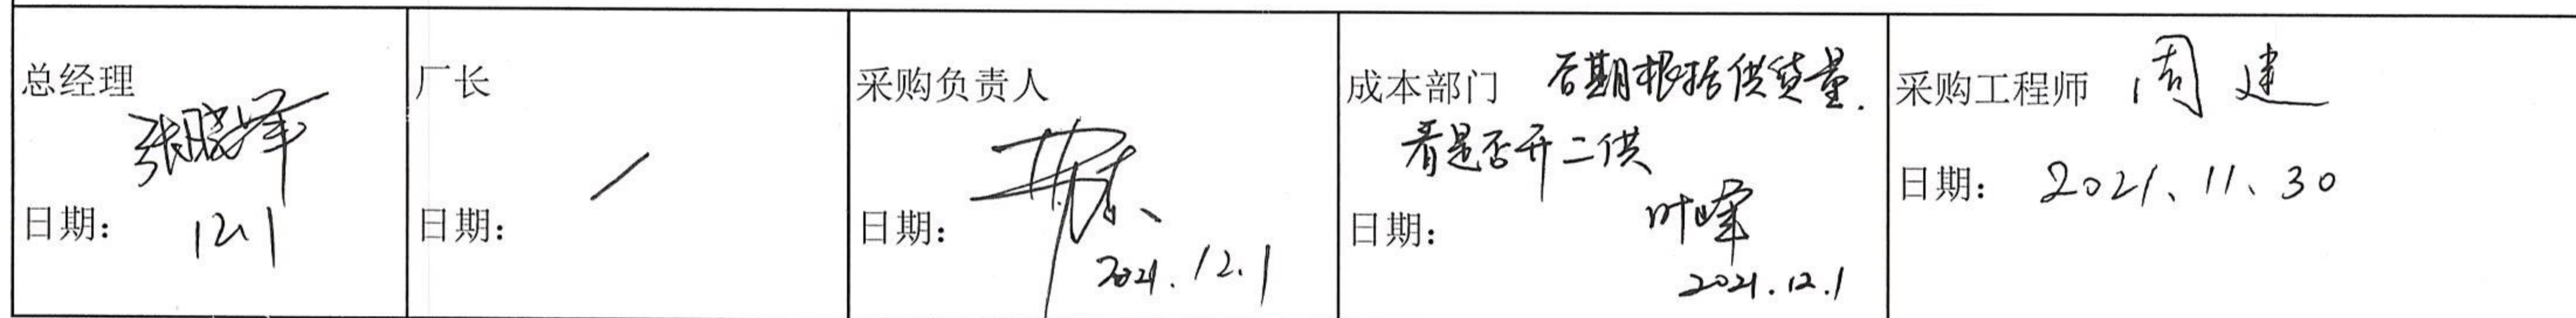 总经理
张晓峰
日期： 12.1
厂长
日期：
采购负责人
日期：
2021.12.1
成本部门 后期根据供货量.
看是否开二供
日期： 叶峰
2021.12.1
采购工程师 周建
日期： 2021、11、30